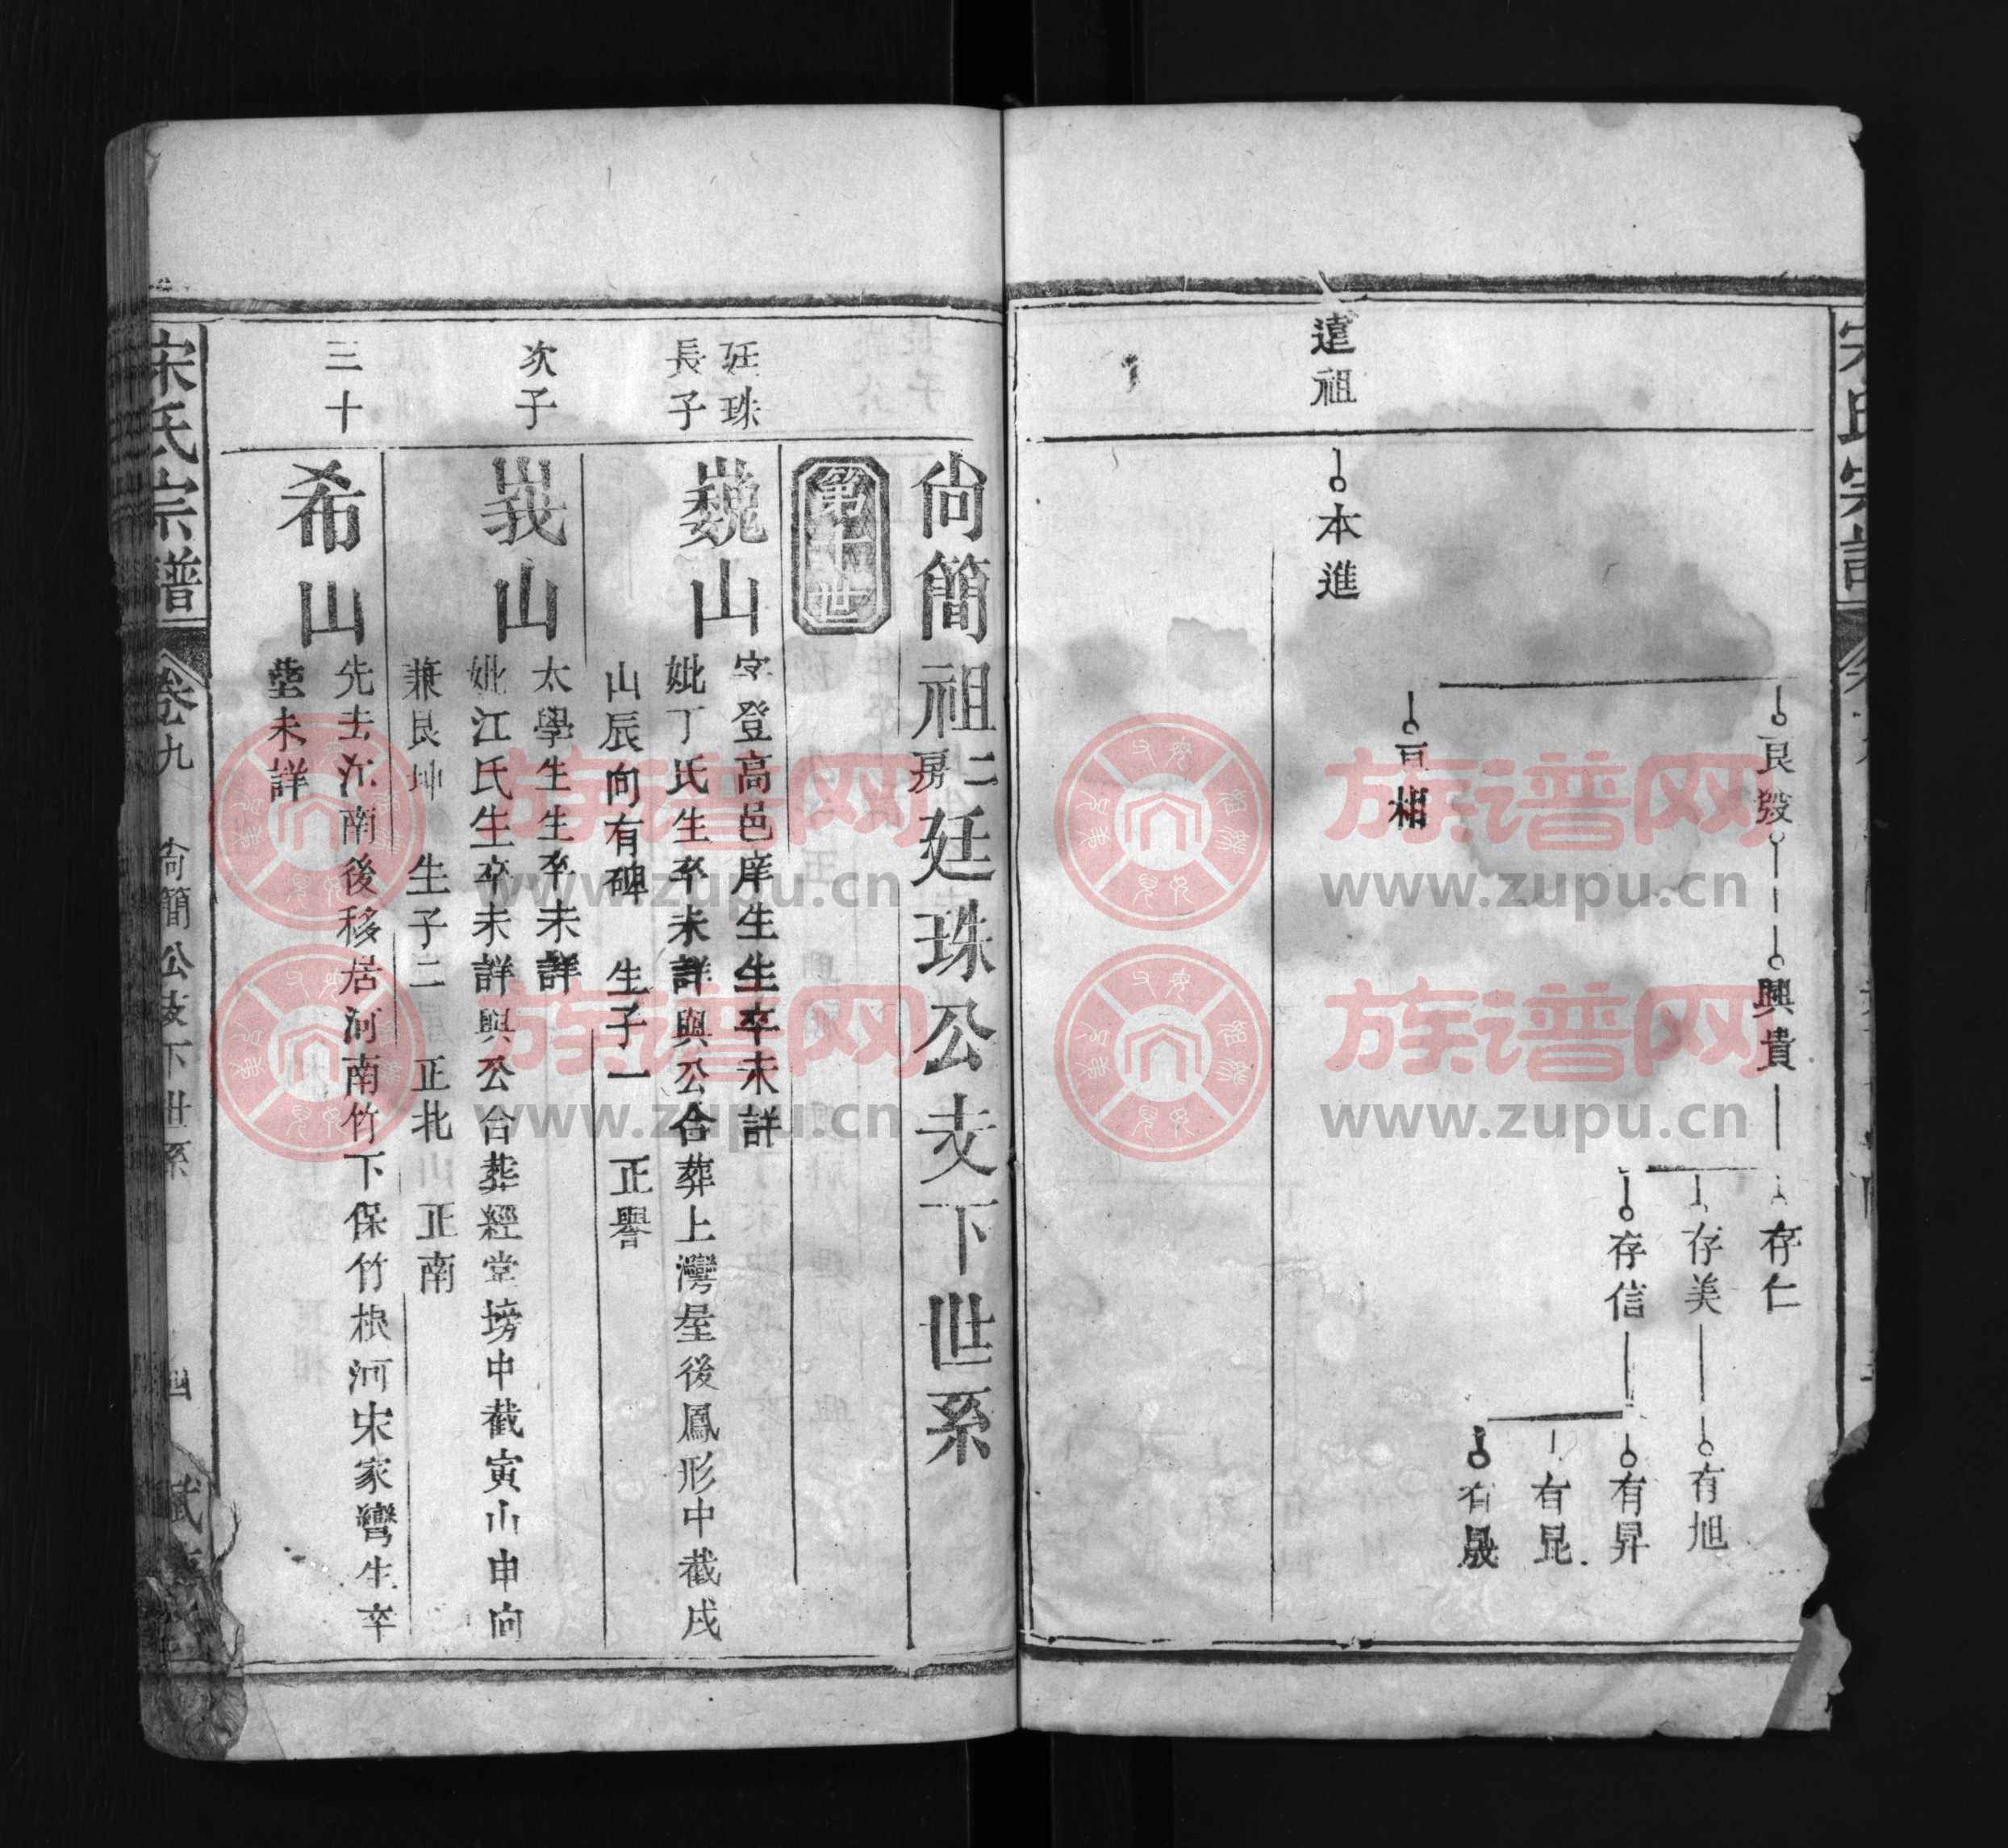 宋氏宗譜
良發
興貴
存仁
存美
存信
有旭
有昇
有昆
有晟
亘相
遠祖
本進
尚簡祖二房廷珠公支下世系
第十世
廷珠
長子
巍山
字登高邑庠生生卒未詳
妣丁氏生卒未詳與公合葬上灣屋後鳳形中截戌
山辰向有碑 生子一 正譽
次子
峩山
太學生生卒未詳
妣江氏生卒未詳與公合葬經堂塝中截寅山申向
兼艮坤 生子二 正北 正南
三十
希山
先去江南後移居河南竹下保竹根河宋家灣生卒
塋未詳
宋氏宗譜
卷九
尚簡公支下世系
四